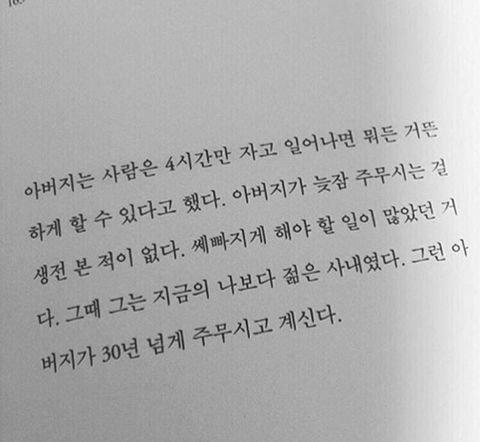 아버지는 사람은 4시간만 자고 일어나면 뭐든 거뜬
하게 할 수 있다고 했다. 아버지가 늦잠 주무시는 걸
생전 본 적이 없다. 쎄빠지게 해야 할 일이 많았던 거
다. 그때 그는 지금의 나보다 젊은 사내였다. 그런 아
버지가 30년 넘게 주무시고 계신다.